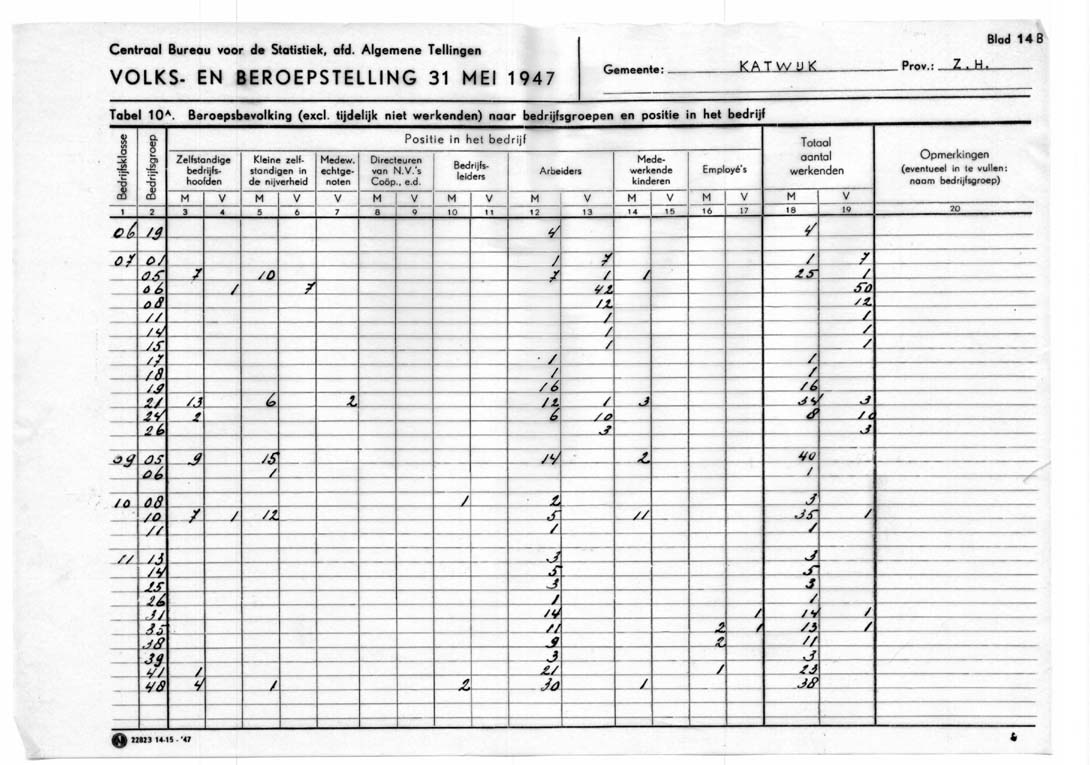 Centraal Bureau voor de Statistiek, afd. Algemene Tellingen
VOLKS- EN BEROEPSTELLING 31 MEI 1947
Gemeente: KATWIJK Prov.: Z.H.
Blad 14B
Tabel 10A. Beroepsbevolking (excl. tijdelijk niet werkenden) naar bedrijfsgroepen en positie in het bedrijf
Bedrijfsklasse
Bedrijfsgroep
Positie in het bedrijf
Zelfstandige bedrijfs-hoofden
Kleine zelf-standigen in de nijverheid
Medew. echtge-noten
Directeuren van N.V.'s Coöp., e.d.
Bedrijfs-leiders
Arbeiders
Mede-werkende kinderen
Employé's
Totaal aantal werkenden
Opmerkingen (eventueel in te vullen: naam bedrijfsgroep)
M V M V V M V M V M V M V M V M V
1 2 3 4 5 6 7 8 9 10 11 12 13 14 15 16 17 18 19 20
06 19 4 4
07 01 1 7 1 7
05 7 10 7 1 1 25 1
06 1 7 42 50
08 12 12
11 1 1
14 1 1
15 1 1
17 1 1
18 1 1
19 16 16
21 13 6 2 12 1 3 34 3
24 2 6 10 8 10
26 3 3
09 05 9 15 14 2 40
06 1 1
10 08 1 2 3
10 7 1 12 5 11 35 1
11 1 1
11 13 3 3
14 5 5
25 3 3
26 1 1
31 14 1 14 1
35 11 2 1 13 1
38 9 2 11
39 3 3
41 1 21 1 23
48 4 1 2 30 1 38
22823 14-15-'47